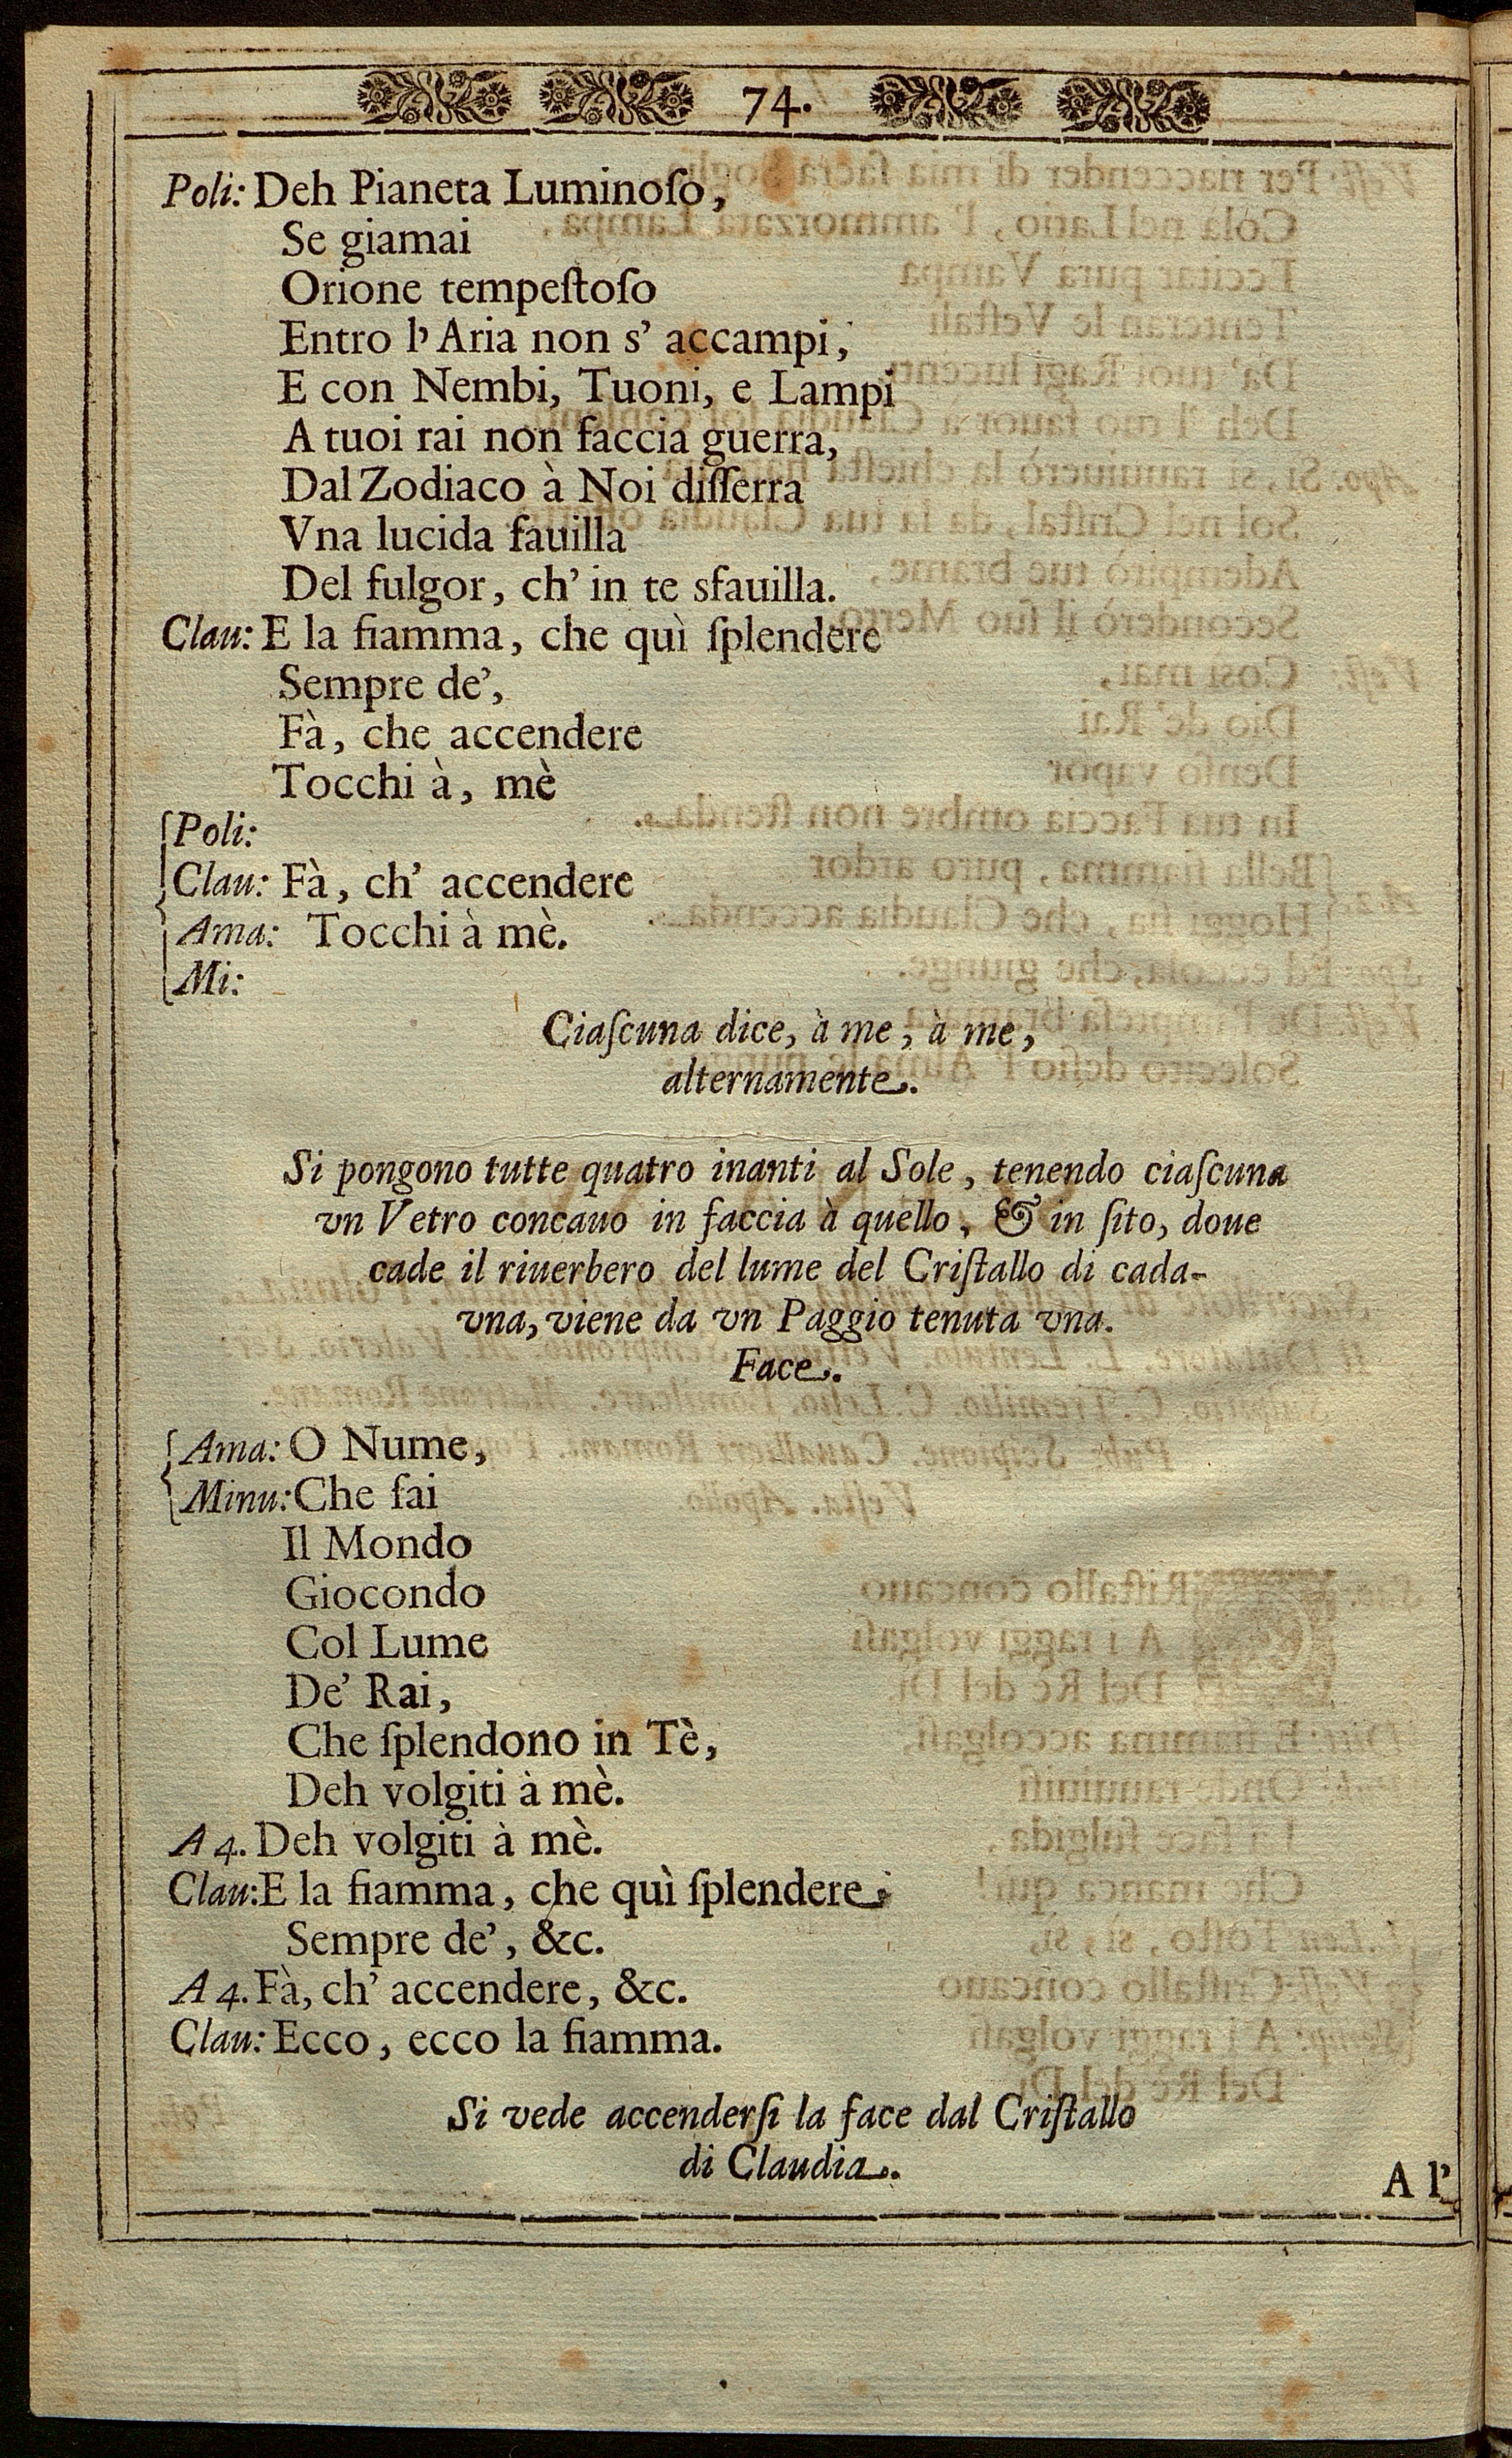 74.
Poli: Deh Pianeta Luminoſo,
Se giamai
Orione tempeſtoſo
Entro l'Aria non s' accampi,
E con Nembi, Tuoni, e Lampi
A tuoi rai non faccia guerra,
Dal Zodiaco à Noi diſſerra
Vna lucida fauilla
Del fulgor, ch' in te sfauilla.
Clau: E la fiamma, che quì ſplendere
Sempre de',
Fà, che accendere
Tocchi à, mè
Poli:
Clau: Fà, ch' accendere
Ama: Tocchi à mè.
Mi:
Ciaſcuna dice, à me, à me,
alternamente.
Si pongono tutte quatro inanti al Sole, tenendo ciaſcuna
vn Vetro concauo in faccia à quello, & in ſito, doue
cade il riuerbero del lume del Criſtallo di cada-
vna, viene da vn Paggio tenuta vna.
Face.
Ama: O Nume,
Minu: Che fai
Il Mondo
Giocondo
Col Lume
De' Rai,
Che ſplendono in Tè,
Deh volgiti à mè.
A 4. Deh volgiti à mè.
Clau: E la fiamma, che quì ſplendere
Sempre de', &c.
A 4. Fà, ch' accendere, &c.
Clau: Ecco, ecco la fiamma.
Si vede accenderſi la face dal Criſtallo
di Claudia.
A l'